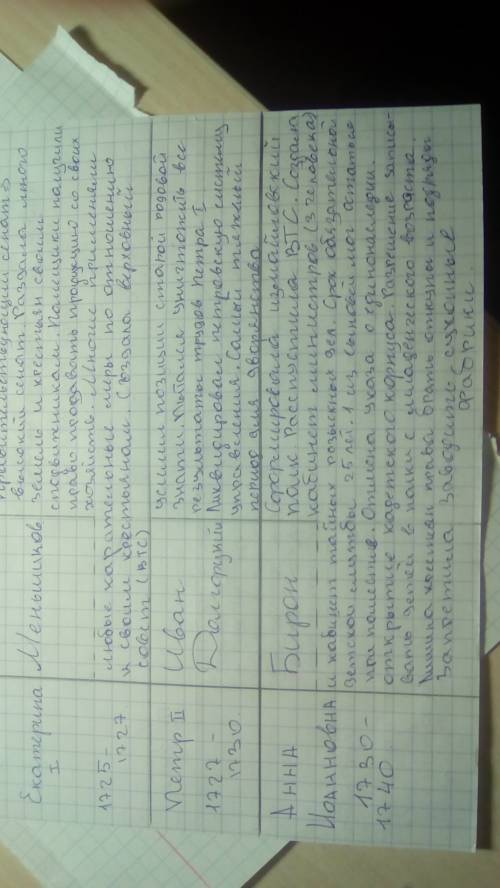 правительствующий сенат в
высокий сенат. Раздала много
земель и крестьян своим
сподвижникам. Помещики получили
право продавать продукцию со своих
хозяйств. Многие применяли
любые карательные меры по отношению
к своим крестьянам. Создала верховный
совет (ВТС)
Екатерина
I
1725-
1727
Меньшиков
Петр II
1727 -
1730
Иван
Долгорукий
усилил позиции старой родовой
знати. Пытался уничтожить все
результаты трудов Петра I
Ликвидировал петровскую систему
управления. Самый тяжелый
период для дворянства
Анна
Иоанновна
1730-
1740.
Бирон
Сформировала измайловский
полк. Расспустила ВТС. Создала
кабинет министров (3 человека)
и кабинет тайных розыскных дел. Срок обязательной
детской службы 25 лет. 1 из сыновей мог остаться
при поместье. Отмена указа о единонаследии.
открытие кадетского корпуса. Разрешение записы-
вать детей в полки с младенческого возраста.
Лишила крестьян права брать откупы и подряды
Запретила заводить суконные
фабрики